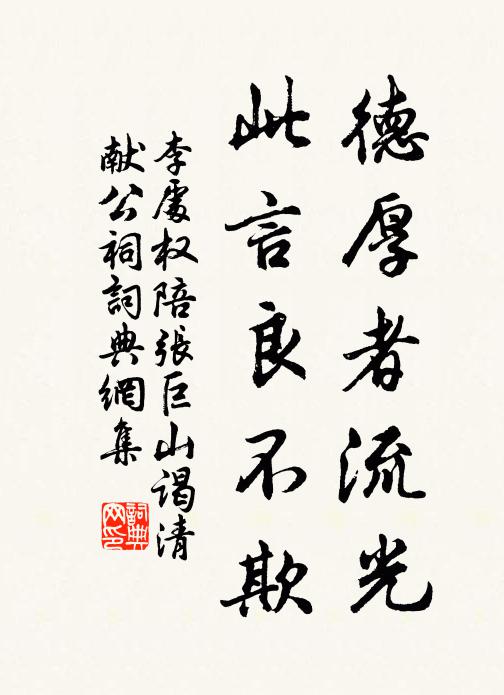 德厚者流光
此言良不欺
李處权陪張巨山谒清
献公祠詞典網集
詞典
网印